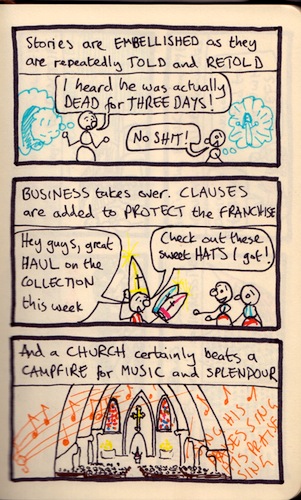 Stories are EMBELLISHED as they
are repeatedly TOLD and RETOLD
I heard he was actually
DEAD for THREE DAYS!
NO SHIT!
BUSINESS takes over. CLAUSES
are added to PROTECT the FRANCHISE
Hey guys, great
HAUL on the
COLLECTION
this week
Check out these
sweet HATS I got!
And a CHURCH certainly beats a
CAMPFIRE for MUSIC and SPLENDOUR
HIS
SING
SING